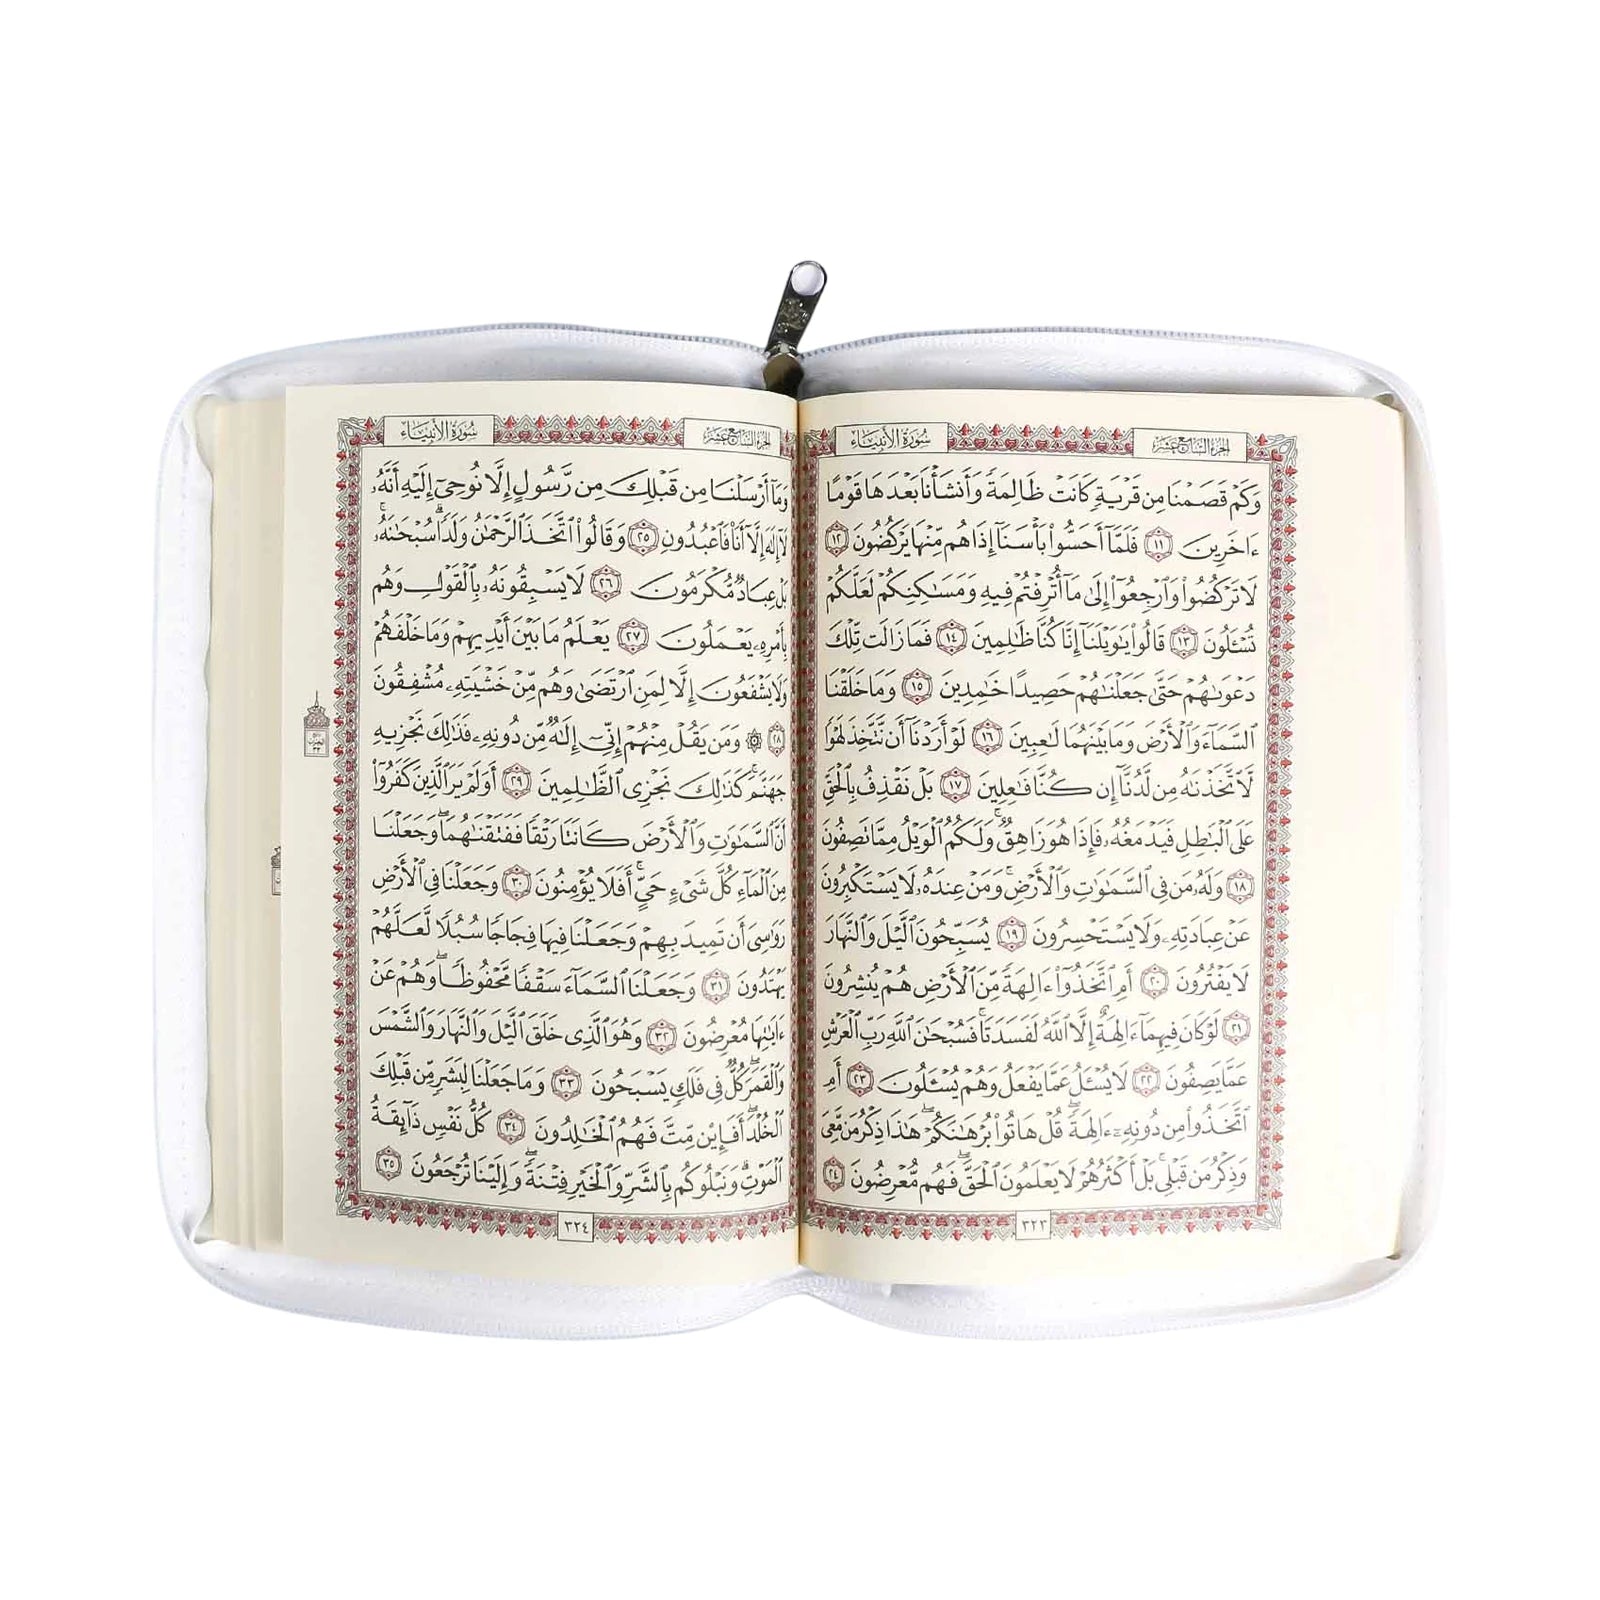 سُورَةُ الأَنبِيَاء
الجُزْءُ السَّابِعَ عَشَرَ
وَكَمْ قَصَمْنَا مِن قَرْيَةٍ كَانَتْ ظَالِمَةً وَأَنشَأْنَا بَعْدَهَا قَوْمًا
ءَاخَرِينَ ١١ فَلَمَّآ أَحَسُّوا۟ بَأْسَنَآ إِذَا هُم مِّنْهَا يَرْكُضُونَ ١٢
لَا تَرْكُضُوا۟ وَٱرْجِعُوٓا۟ إِلَىٰ مَآ أُتْرِفْتُمْ فِيهِ وَمَسَـٰكِنِكُمْ لَعَلَّكُمْ
تُسْـَٔلُونَ ١٣ قَالُوا۟ يَـٰوَيْلَنَآ إِنَّا كُنَّا ظَـٰلِمِينَ ١٤ فَمَا زَالَت تِّلْكَ
دَعْوَىٰهُمْ حَتَّىٰ جَعَلْنَـٰهُمْ حَصِيدًا خَـٰمِدِينَ ١٥ وَمَا خَلَقْنَا
ٱلسَّمَآءَ وَٱلْأَرْضَ وَمَا بَيْنَهُمَا لَـٰعِبِينَ ١٦ لَوْ أَرَدْنَآ أَن نَّتَّخِذَ لَهْوًا
لَّٱتَّخَذْنَـٰهُ مِن لَّدُنَّآ إِن كُنَّا فَـٰعِلِينَ ١٧ بَلْ نَقْذِفُ بِٱلْحَقِّ
عَلَى ٱلْبَـٰطِلِ فَيَدْمَغُهُۥ فَإِذَا هُوَ زَاهِقٌ ۚ وَلَكُمُ ٱلْوَيْلُ مِمَّا تَصِفُونَ
١٨ وَلَهُۥ مَن فِى ٱلسَّمَـٰوَٰتِ وَٱلْأَرْضِ ۚ وَمَنْ عِندَهُۥ لَا يَسْتَكْبِرُونَ
عَنْ عِبَادَتِهِۦ وَلَا يَسْتَحْسِرُونَ ١٩ يُسَبِّحُونَ ٱلَّيْلَ وَٱلنَّهَارَ
لَا يَفْتُرُونَ ٢٠ أَمِ ٱتَّخَذُوٓا۟ ءَالِهَةً مِّنَ ٱلْأَرْضِ هُمْ يُنشِرُونَ
٢١ لَوْ كَانَ فِيهِمَآ ءَالِهَةٌ إِلَّا ٱللَّهُ لَفَسَدَتَا ۚ فَسُبْحَـٰنَ ٱللَّهِ رَبِّ ٱلْعَرْشِ
عَمَّا يَصِفُونَ ٢٢ لَا يُسْـَٔلُ عَمَّا يَفْعَلُ وَهُمْ يُسْـَٔلُونَ ٢٣ أَمِ
ٱتَّخَذُوا۟ مِن دُونِهِۦٓ ءَالِهَةً ۖ قُلْ هَاتُوا۟ بُرْهَـٰنَكُمْ ۖ هَـٰذَا ذِكْرُ مَن مَّعِىَ
وَذِكْرُ مَن قَبْلِى ۗ بَلْ أَكْثَرُهُمْ لَا يَعْلَمُونَ ٱلْحَقَّ ۖ فَهُم مُّعْرِضُونَ ٢٤
٣٢٣
سُورَةُ الأَنبِيَاء
الجُزْءُ السَّابِعَ عَشَرَ
وَمَآ أَرْسَلْنَا مِن قَبْلِكَ مِن رَّسُولٍ إِلَّا نُوحِىٓ إِلَيْهِ أَنَّهُۥ
لَآ إِلَـٰهَ إِلَّآ أَنَا۠ فَٱعْبُدُونِ ٢٥ وَقَالُوا۟ ٱتَّخَذَ ٱلرَّحْمَـٰنُ وَلَدًا ۗ سُبْحَـٰنَهُۥ ۚ
بَلْ عِبَادٌ مُّكْرَمُونَ ٢٦ لَا يَسْبِقُونَهُۥ بِٱلْقَوْلِ وَهُم
بِأَمْرِهِۦ يَعْمَلُونَ ٢٧ يَعْلَمُ مَا بَيْنَ أَيْدِيهِمْ وَمَا خَلْفَهُمْ
وَلَا يَشْفَعُونَ إِلَّا لِمَنِ ٱرْتَضَىٰ وَهُم مِّنْ خَشْيَتِهِۦ مُشْفِقُونَ
٢٨ ۞ وَمَن يَقُلْ مِنْهُمْ إِنِّىٓ إِلَـٰهٌ مِّن دُونِهِۦ فَذَٰلِكَ نَجْزِيهِ
جَهَنَّمَ ۚ كَذَٰلِكَ نَجْزِى ٱلظَّـٰلِمِينَ ٢٩ أَوَلَمْ يَرَ ٱلَّذِينَ كَفَرُوٓا۟
أَنَّ ٱلسَّمَـٰوَٰتِ وَٱلْأَرْضَ كَانَتَا رَتْقًا فَفَتَقْنَـٰهُمَا ۖ وَجَعَلْنَا
مِنَ ٱلْمَآءِ كُلَّ شَىْءٍ حَىٍّ ۖ أَفَلَا يُؤْمِنُونَ ٣٠ وَجَعَلْنَا فِى ٱلْأَرْضِ
رَوَٰسِىَ أَن تَمِيدَ بِهِمْ وَجَعَلْنَا فِيهَا فِجَاجًا سُبُلًا لَّعَلَّهُمْ
يَهْتَدُونَ ٣١ وَجَعَلْنَا ٱلسَّمَآءَ سَقْفًا مَّحْفُوظًا ۖ وَهُمْ عَنْ
ءَايَـٰتِهَا مُعْرِضُونَ ٣٢ وَهُوَ ٱلَّذِى خَلَقَ ٱلَّيْلَ وَٱلنَّهَارَ وَٱلشَّمْسَ
وَٱلْقَمَرَ ۖ كُلٌّ فِى فَلَكٍ يَسْبَحُونَ ٣٣ وَمَا جَعَلْنَا لِبَشَرٍ مِّن قَبْلِكَ
ٱلْخُلْدَ ۖ أَفَإِي۟ن مِّتَّ فَهُمُ ٱلْخَـٰلِدُونَ ٣٤ كُلُّ نَفْسٍ ذَآئِقَةُ
ٱلْمَوْتِ ۗ وَنَبْلُوكُم بِٱلشَّرِّ وَٱلْخَيْرِ فِتْنَةً ۖ وَإِلَيْنَا تُرْجَعُونَ ٣٥
٣٢٤